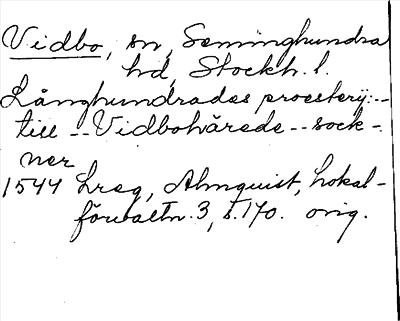 Vidbo, sn, Seminghundra
hd, Stockh. l.
Långhundrades proesterij:--
till -- Vidbohärede -- sock-
ner
1544 Lreg, Almquist, Lokal-
förvaltn. 3, s. 170. orig.